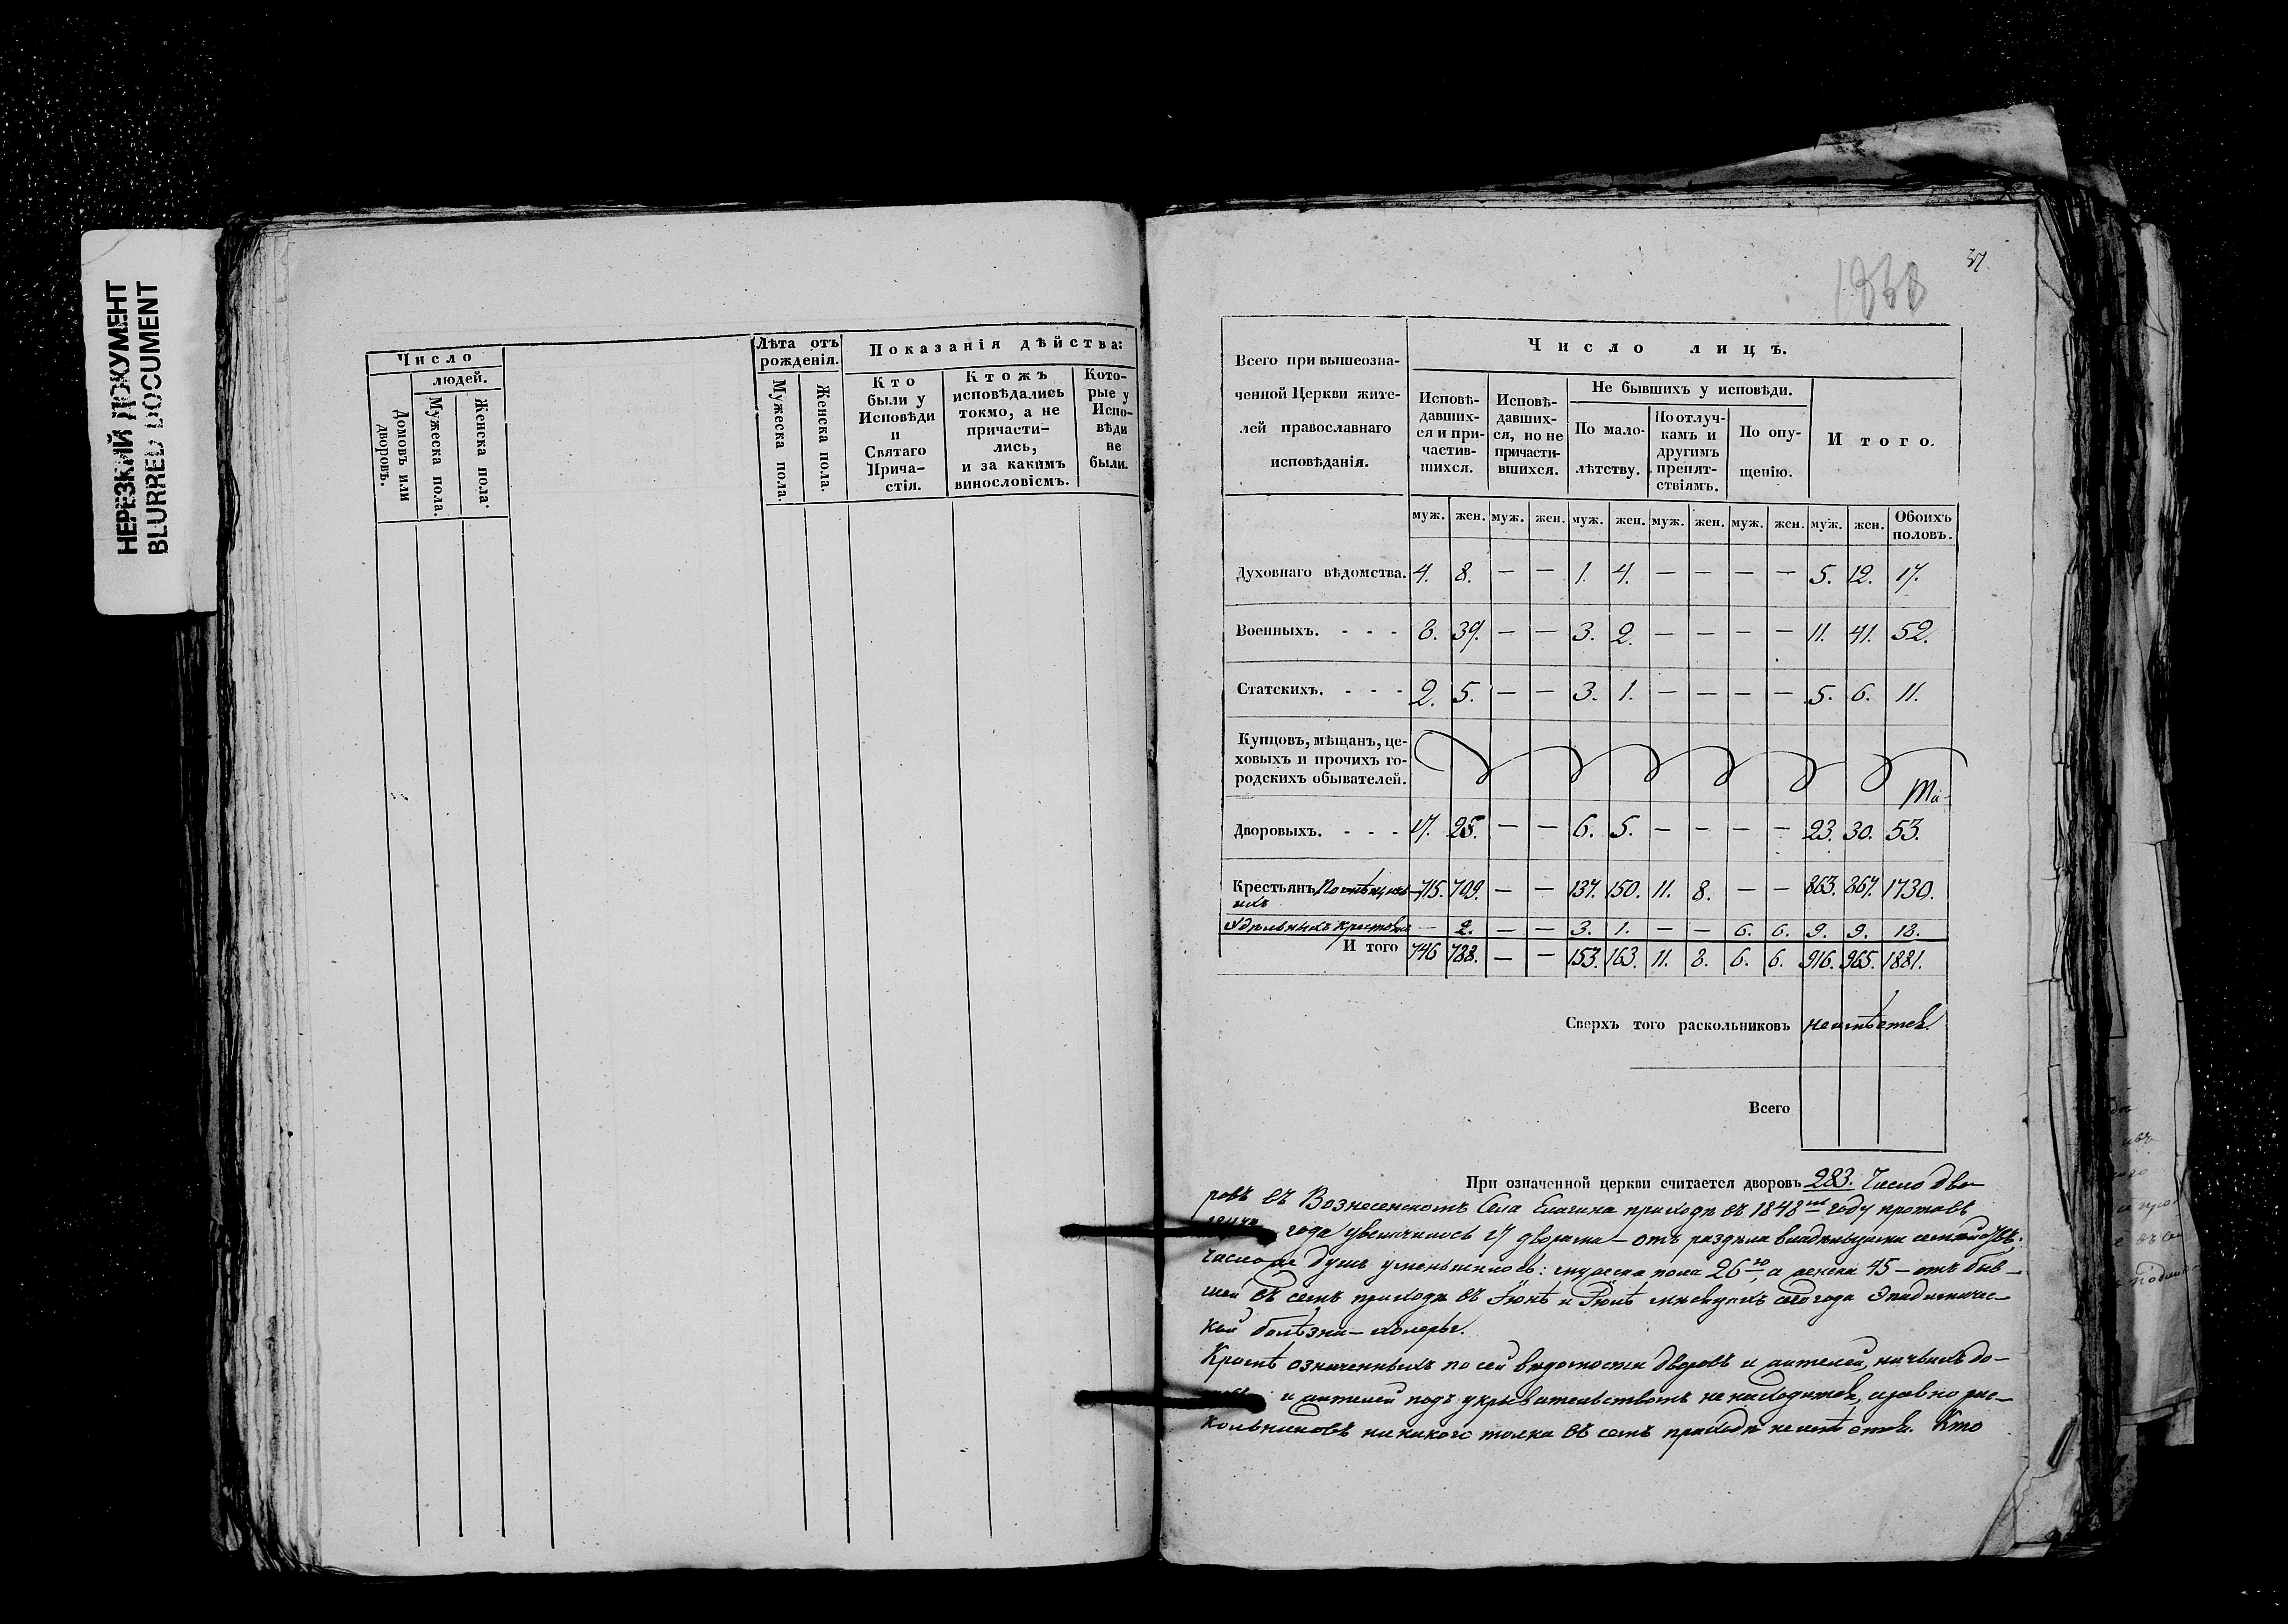 НЕРЕЗКИЙ ДОКУМЕНТ
BLURRED DOCUMENT
Число
людей.
Домовъ или дворовъ.
Мужеска пола.
Женска пола.
Лѣта отъ рожденія.
Мужеска пола.
Женска пола.
Показанія дѣйства:
Кто
были у
Исповѣди
и
Святаго
Прича-
стія.
Ктожъ
исповѣдались
токмо, а не
причасти-
лись,
и за какимъ
винословіемъ.
Кото-
рые у
Испо-
вѣди
не
были.
37.
Всего при вышеозна-
ченной Церкви жите-
лей православнаго
исповѣданія.
Число лицъ.
Исповѣ-
давших-
ся и при-
частив-
шихся.
Исповѣ-
давших-
ся, но не
причасти-
вшихся.
Не бывшихъ у исповѣди.
По мало-
лѣтству.
По отлуч-
камъ и
другимъ
препят-
ствіямъ.
По опу-
щенію.
Итого.
муж. жен. муж. жен. муж. жен. муж. жен. муж. жен. муж. жен. Обоихъ половъ.
Духовнаго вѣдомства. 4. 8. — — 1. 4. — — — — 5. 12. 17.
Военныхъ. - - - 8. 39. — — 3. 2. — — — — 11. 41. 52.
Статскихъ. - - - 2. 5. — — 3. 1. — — — — 5. 6. 11.
Купцовъ, мѣщанъ, це-
ховыхъ и прочихъ го-
родскихъ обывателей.
Дворовыхъ. - - - 17. 25. — — 6. 5. — — — — 23. 30. 53.
Крестьянъ Помѣщичь-
ихъ 715. 709. — — 137. 150. 11. 8. — — 863. 867. 1730.
Удѣльныхъ Крестьянъ — 2. — — 3. 1. — — 6. 6. 9. 9. 18.
Итого 746 788. — — 153. 163. 11. 8. 6. 6. 916. 965. 1881.
Сверхъ того раскольниковъ неимѣется.
Всего
При означенной церкви считается дворовъ 283. Число дво-
ровъ въ Вознесенскомъ Села Елагина приходѣ въ 1848мъ году противъ
года увеличилось 17 дворами — отъ раздѣла владѣльцами семействъ.
Число же душъ уменьшилось: мужеска пола 26ю, а женска 45 — отъ быв-
шей въ семъ приходѣ въ Іюнѣ и Іюлѣ мѣсяцахъ сего года Эпидемичес-
кой болѣзни — холеры.
Кромѣ означенныхъ по сей вѣдомости дворовъ и жителей, ничьихъ до-
и жителей подъ укрывательствомъ не находится, и равно рас-
кольниковъ никакого толка въ семъ приходѣ неимѣется. Кто